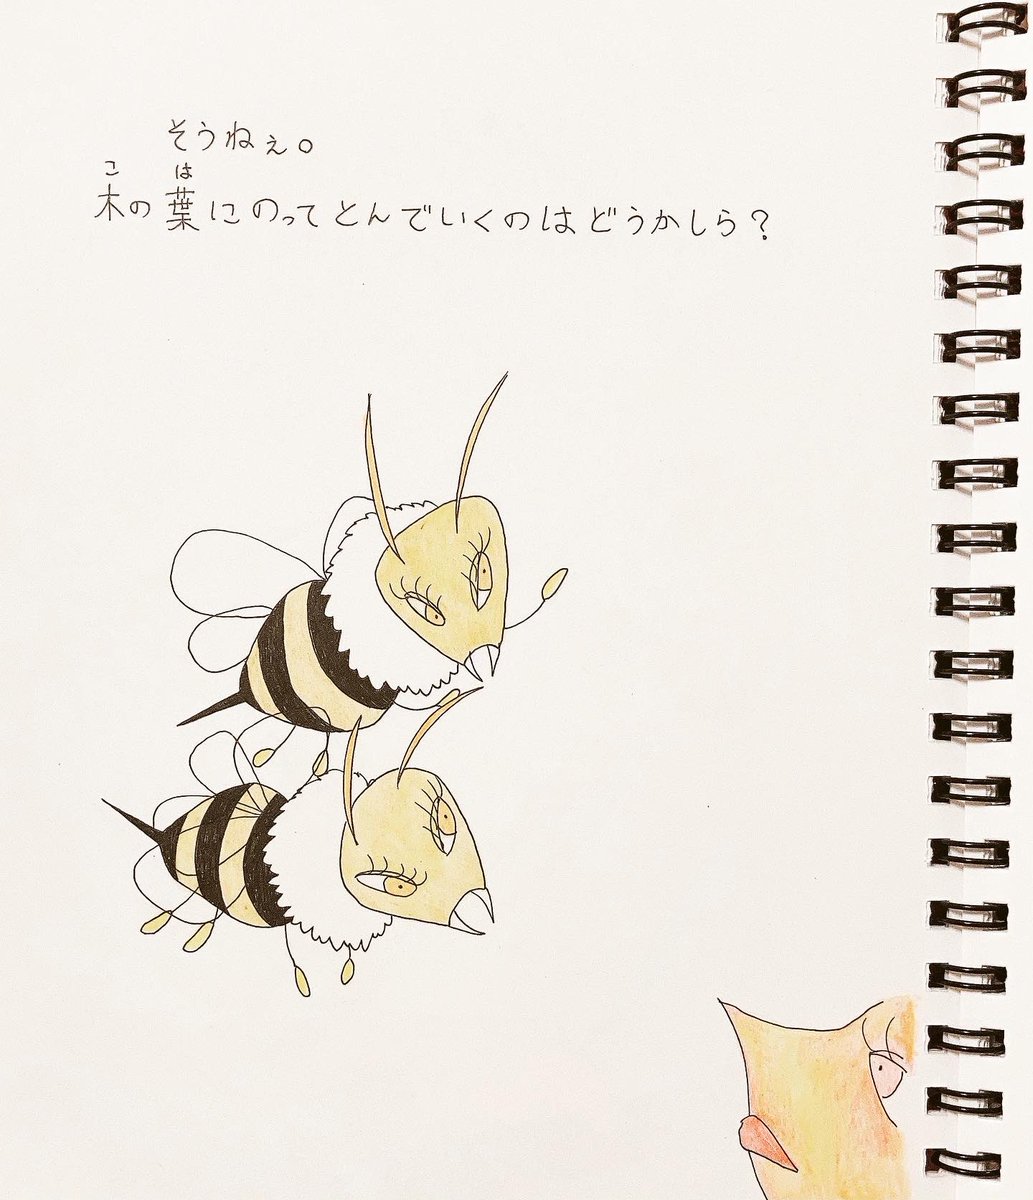 そうねぇ。
こ は
木の葉にのってとんでいくのはどうかしら?